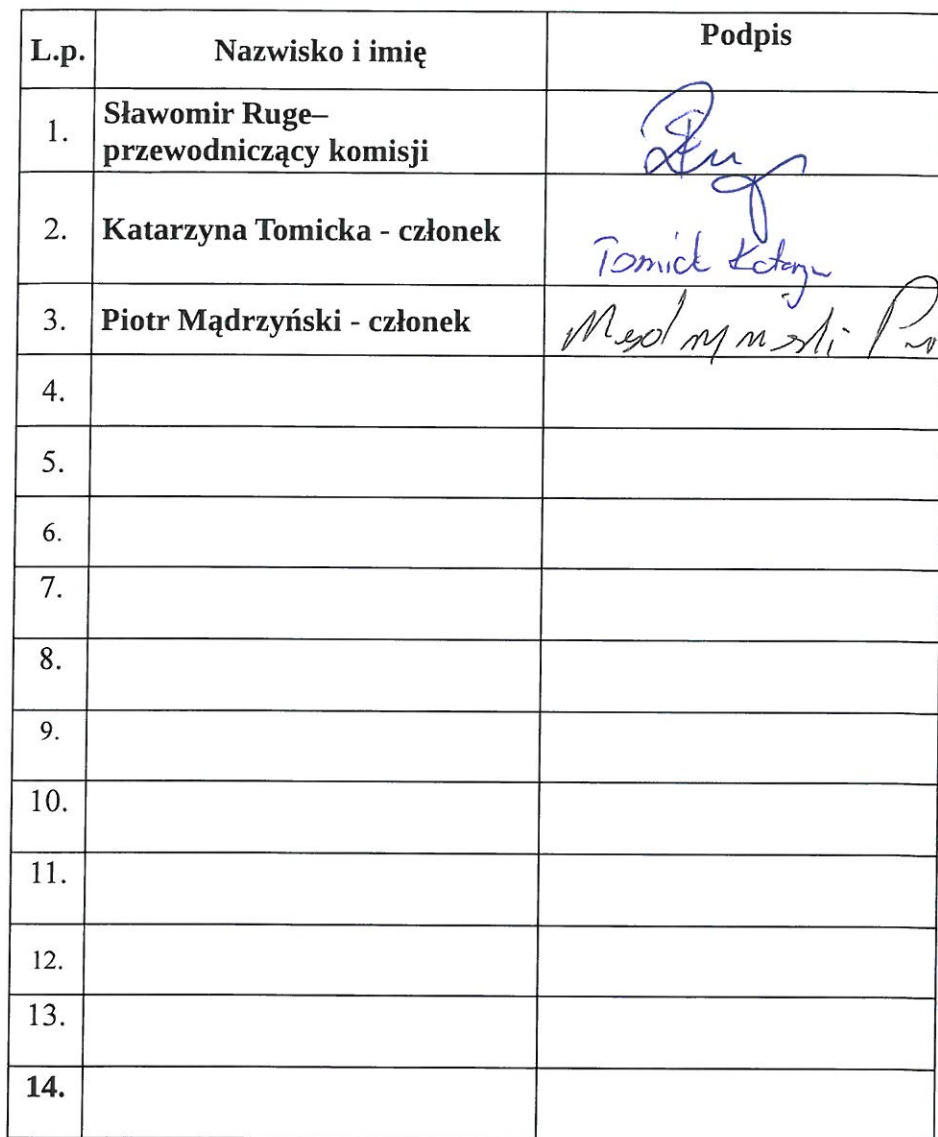 L.p. Nazwisko i imię Podpis
1. Sławomir Ruge–
przewodniczący komisji
2. Katarzyna Tomicka - członek
Tomick
3. Piotr Mądrzyński - członek
4.
5.
6.
7.
8.
9.
10.
11.
12.
13.
14.